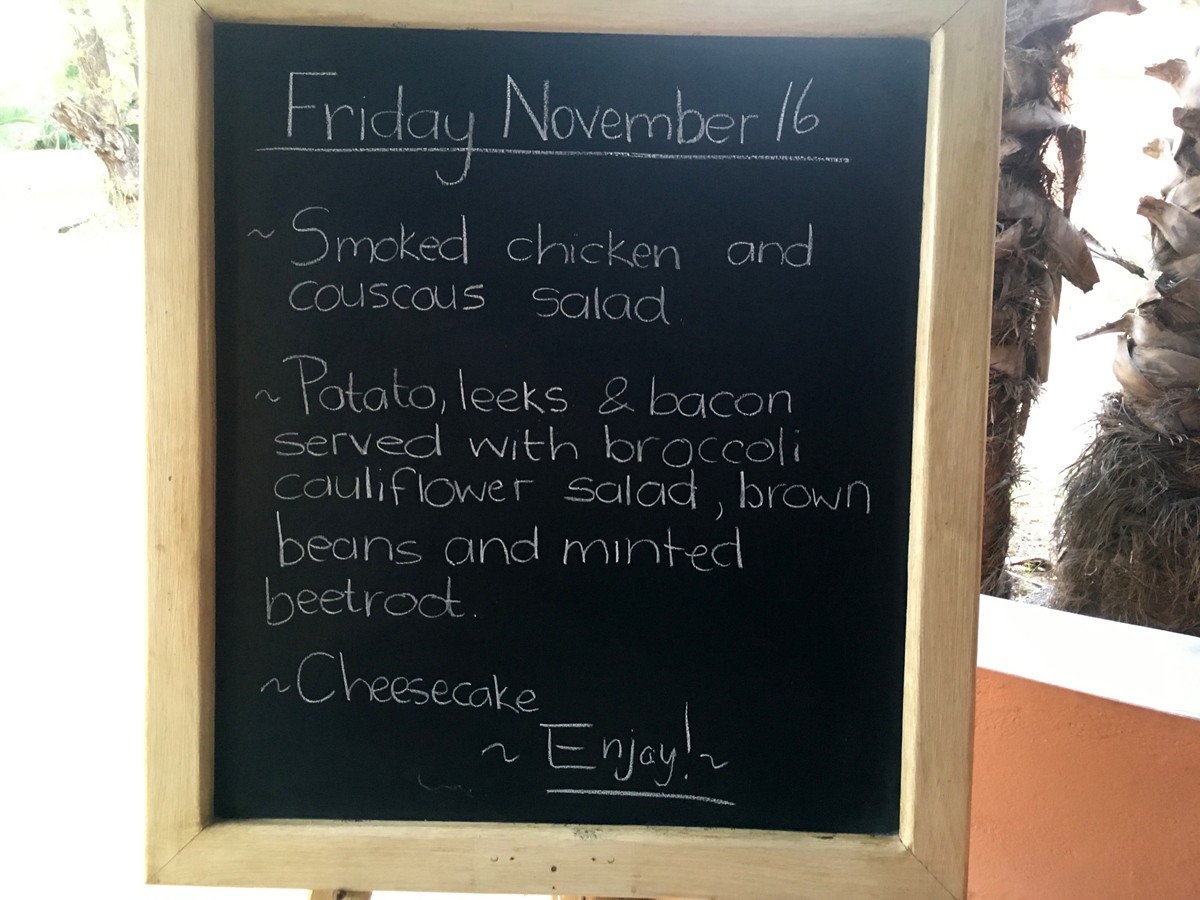 Friday November 16
~ Smoked chicken and
couscous salad.
~ Potato, leeks & bacon
served with broccoli
cauliflower salad, brown
beans and minted
beetroot.
~ Cheesecake
~ Enjoy! ~